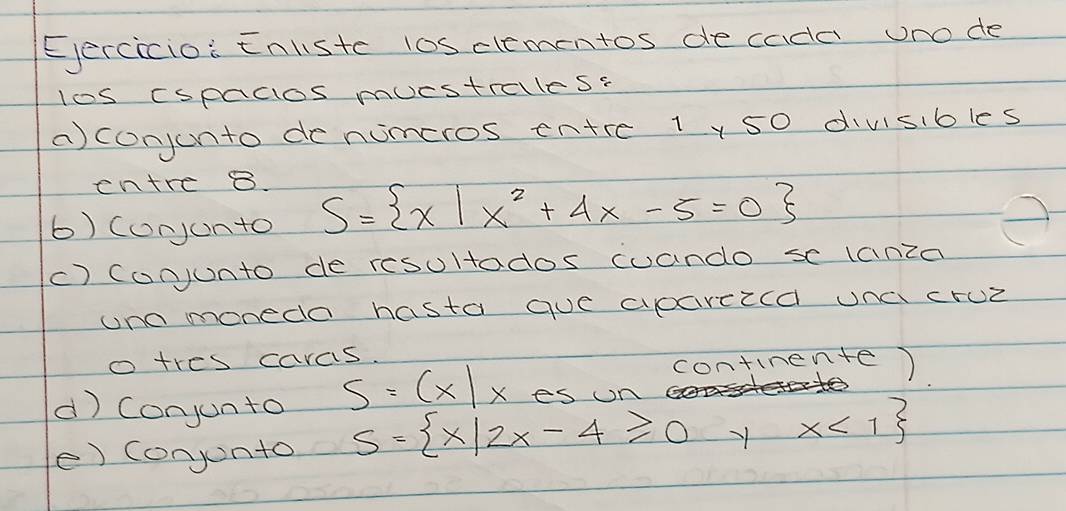 Ejercicio: Enliste los elementos de cada uno de
los espacios muestrales:
a) conjunto de números entre 1 y 50 divisibles
entre 8.
b) Conjunto S = {x | x² + 4x - 5 = 0}
c) Conjunto de resultados cuando se lanza
una moneda hasta que aparezca una cruz
o tres caras.
d) Conjunto S = (x | x es un continente).
e) Conjunto S = {x | 2x - 4 ≥ 0 y x < 1}